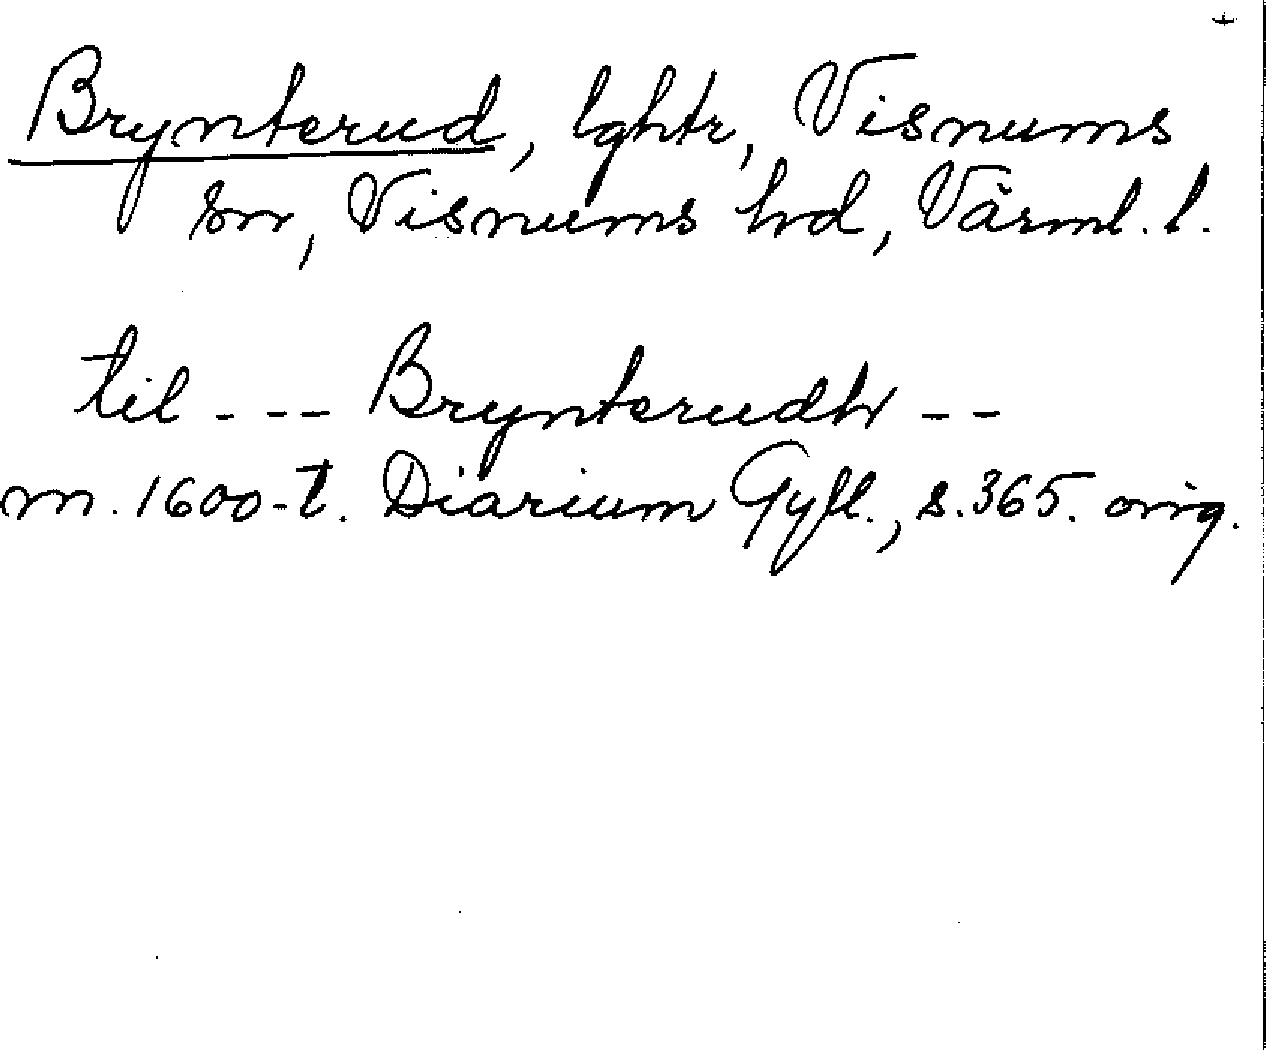 Brynterud, lghtr, Visnums
sn, Visnums hd, Värml. l.
til - - - Brynterudh - -
m. 1600-t. Diarium Gyll., s. 365. orig.